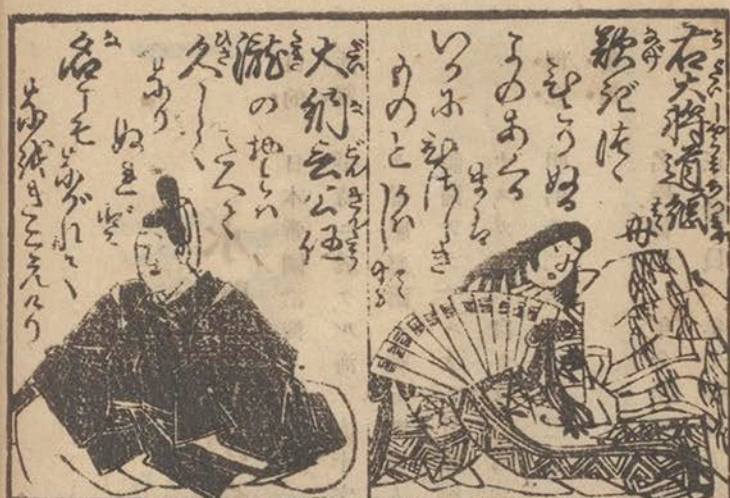 右大将道綱母
歎きつゝ
ひとりぬる
よのあくる
まは
いかにひさしき
ものとかはしる
大納言公任
瀧の音は
たえて
久しく
なり
ぬれど
名こそながれて
なほきこえけれ